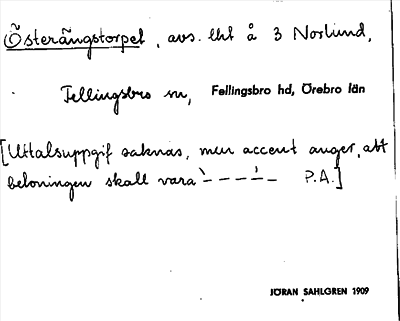 Österängstorpet, avs. lht å 3 Norlund,
Fellingsbro sn, Fellingsbro hd, Örebro län
[Uttalsuppgif saknas, men accent anger, att
betoningen skall vara `– – – –́ – P.A.]
JÖRAN SAHLGREN 1909